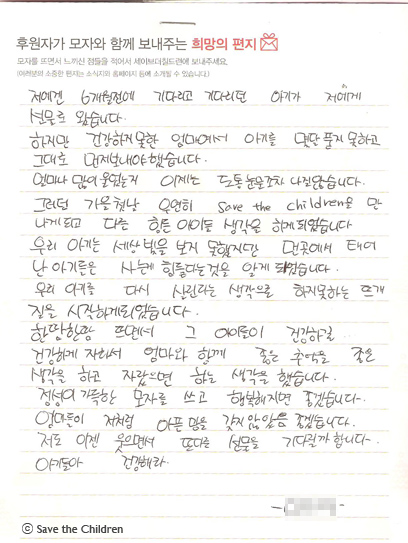 후원자가 모자와 함께 보내주는 희망의 편지
모자를 뜨면서 느끼신 점들을 적어서 세이브더칠드런에 보내주세요.
(여러분의 소중한 편지는 소식지와 홈페이지 등에 소개될 수 있습니다.)
저에겐 6개월전에 기다리고 기다리던 아기가 저에게
선물로 왔습니다.
하지만 건강하지못한 엄마에게서 아기를 꿈도 못하고
그대로 먼저보내야했습니다.
얼마나 많이 울었는지 이제는 도통 눈물조차 나질않습니다.
그러던 가을 첫날 우연히 Save the children을 만
나게되고 다른 힘든 아이들 생각을 하게 되었습니다
우리 아기는 세상 빛을 보지 못했지만 먼곳에서 태어
난 아기들은 사는게 힘들다는것을 알게 되었습니다.
우리 아기를 다시 살린다는 생각으로 하지못하는 뜨개
질을 시작하게되었습니다.
한땀한땀 뜨면서 그 아이들이 건강하길..
건강하게 자라서 엄마와 함께 좋은 추억을 좋은
생각을 하고 자랐으면 하는 생각을 했습니다.
정성이 가득한 모자를 쓰고 행복해지면 좋겠습니다.
엄마들이 저처럼 아픈 맘을 갖지 않았음 좋겠습니다.
저도 이젠 웃으면서 또다른 선물을 기다릴까 합니다.
아기들아 건강해라.
ⓒ Save the Children